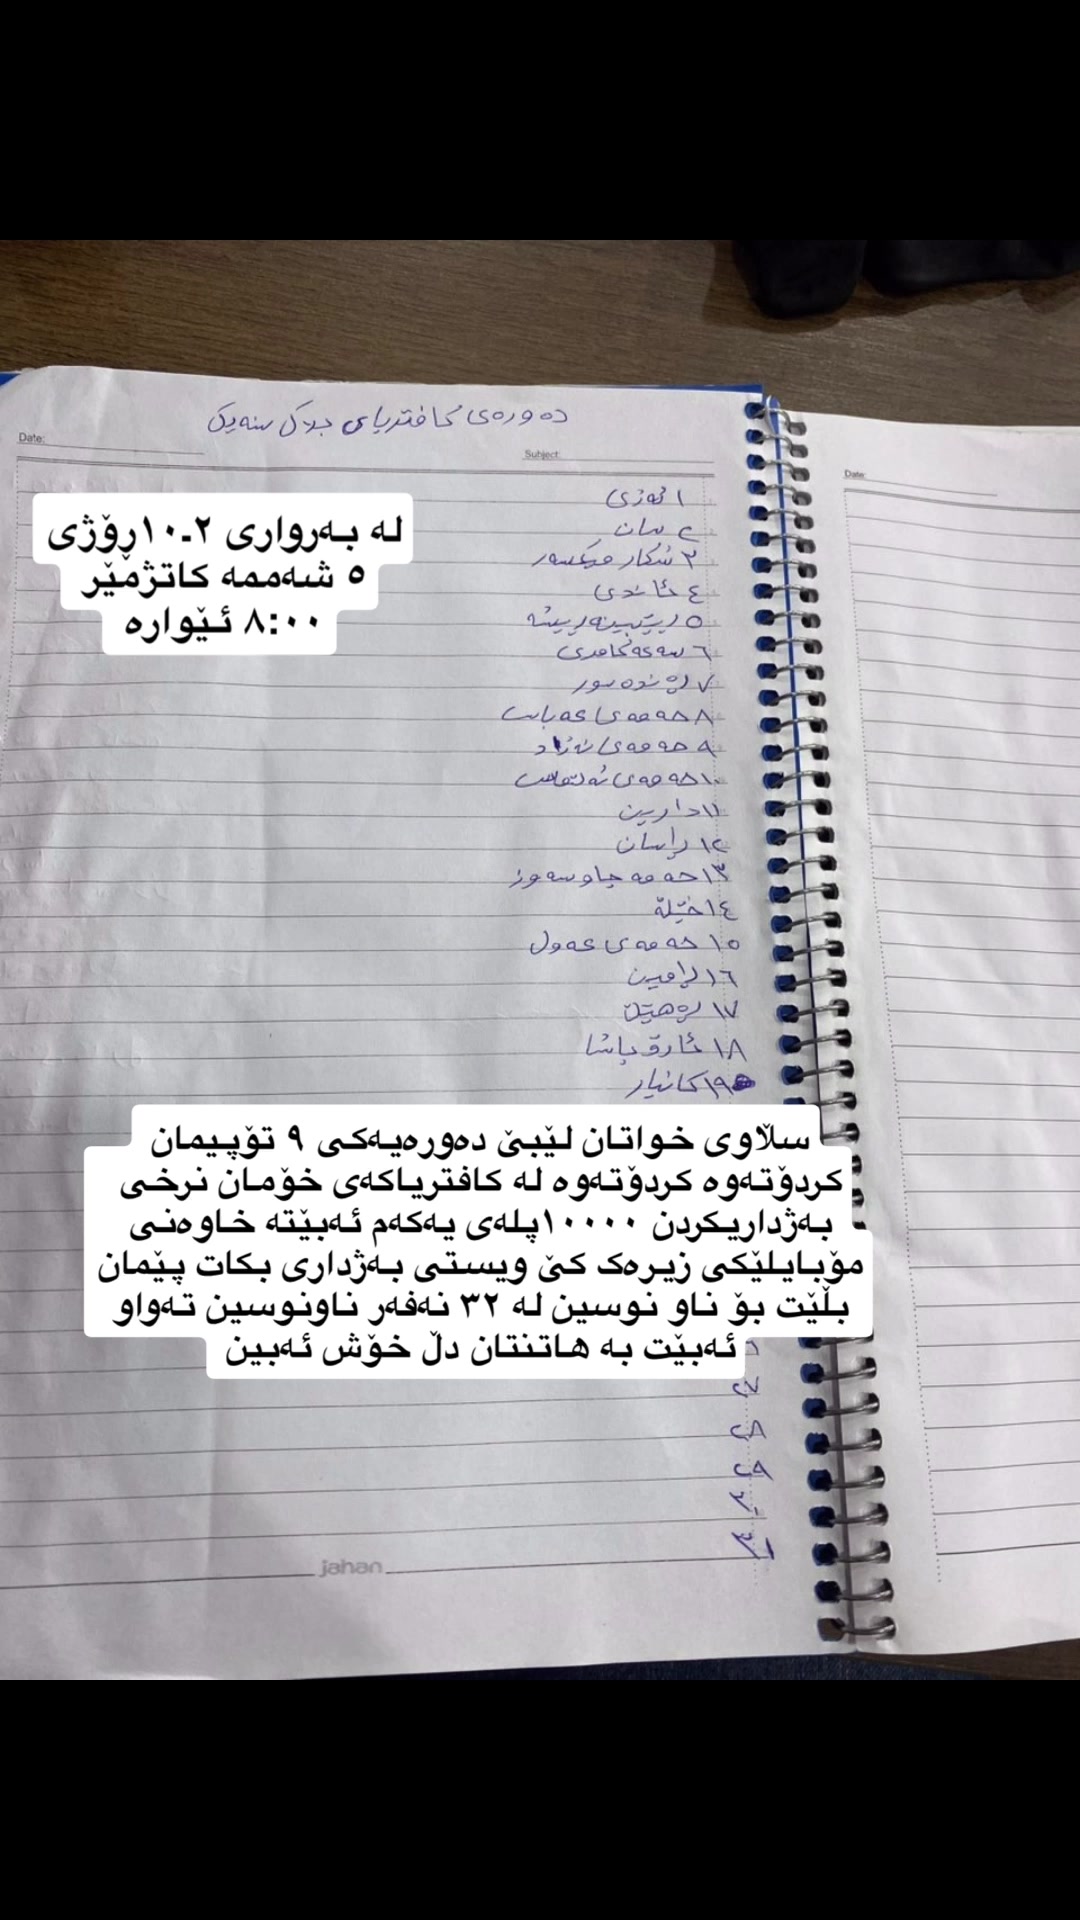 دەورەی کافتریای بلاک سنەیک
Date:
Subject:
Date:
لە بەرواری ١٠.٢ڕۆژی
٥ شەممە کاتژمێر
٨:٠٠ ئێوارە
١
٢ سان
٣ شکار
٤ ئاندی
٥
٦
٧
٨ حەمەی
٩ حەمەی نەژاد
١٠ حەمەی
١١ دارین
١٢ ڕاسان
١٣ حەمە چاو سەوز
١٤ خێلە
١٥ حەمەی عەول
١٦ ڕامین
١٧
١٨ پاشا
١٩ کانیار
سڵاوی خواتان لێبێ دەورەیەکی ٩ تۆپیمان
کردۆتەوە کردۆتەوە لە کافتریاکەی خۆمان نرخی
بەژداریکردن ١٠٠٠٠پلەی یەکەم ئەبێتە خاوەنی
مۆبایلێکی زیرەک کێ ویستی بەژداری بکات پێمان
بڵێت بۆ ناو نوسین لە ٣٢ نەفەر ناونوسین تەواو
ئەبێت بە هاتنتان دڵ خۆش ئەبین
٢٧
٢٨
٢٩
٣٠
٣١
jahan